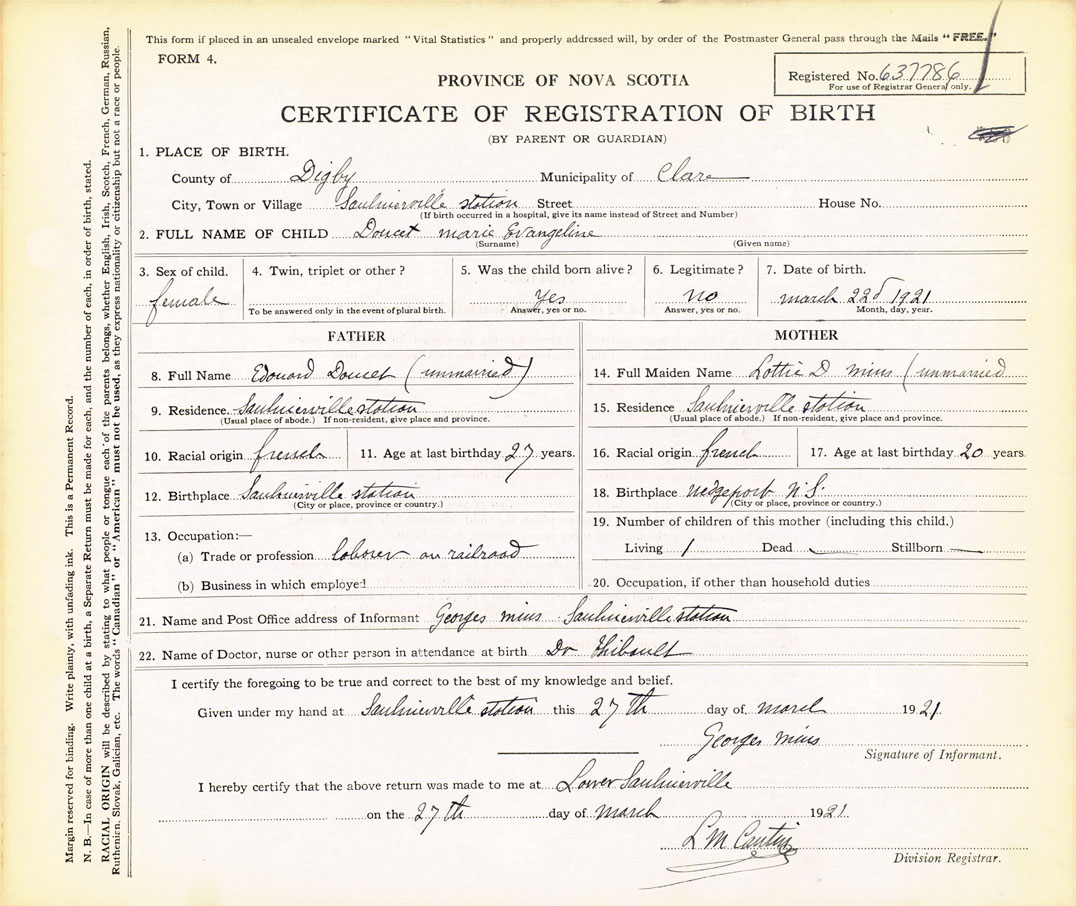 This form if placed in an unsealed envelope marked "Vital Statistics" and properly addressed will, by order of the Postmaster General pass through the Mails "FREE."
FORM 4.
Registered No. 637786
For use of Registrar General only.
PROVINCE OF NOVA SCOTIA
CERTIFICATE OF REGISTRATION OF BIRTH
(BY PARENT OR GUARDIAN)
1. PLACE OF BIRTH.
County of Digby Municipality of Clare
City, Town or Village Saulnierville station Street House No.
(If birth occurred in a hospital, give its name instead of Street and Number)
2. FULL NAME OF CHILD Doucet marie Evangeline
(Surname) (Given name)
3. Sex of child. 4. Twin, triplet or other? 5. Was the child born alive? 6. Legitimate? 7. Date of birth.
female yes no march 22d 1921
To be answered only in the event of plural birth. Answer, yes or no. Answer, yes or no. Month, day, year.
FATHER
8. Full Name Edouard Doucet (unmarried)
9. Residence Saulnierville station
(Usual place of abode.) If non-resident, give place and province.
10. Racial origin french 11. Age at last birthday 27 years.
12. Birthplace Saulnierville station
(City or place, province or country.)
13. Occupation:—
(a) Trade or profession laborer on railroad
(b) Business in which employed
MOTHER
14. Full Maiden Name Lottie D mius (unmarried
15. Residence Saulnierville station
(Usual place of abode.) If non-resident, give place and province.
16. Racial origin french 17. Age at last birthday 20 years
18. Birthplace wedgeport N.S.
(City or place, province or country.)
19. Number of children of this mother (including this child.)
Living 1 Dead — Stillborn —
20. Occupation, if other than household duties
21. Name and Post Office address of Informant Georges mius Saulnierville station
22. Name of Doctor, nurse or other person in attendance at birth Dr Thibault
I certify the foregoing to be true and correct to the best of my knowledge and belief.
Given under my hand at Saulnierville station this 27th day of march 1921.
Georges mius
Signature of Informant.
I hereby certify that the above return was made to me at Lower Saulnierville
on the 27th day of march 1921.
L M
Division Registrar.
Margin reserved for binding. Write plainly, with unfading ink. This is a Permanent Record.
N. B.—In case of more than one child at a birth, a Separate Return must be made for each, and the number of each, in order of birth, stated.
RACIAL ORIGIN will be described by stating to what people or tongue each of the parents belongs, whether English, Irish, Scotch, French, German, Russian,
Ruthenian, Slovak, Galician, etc. The words "Canadian" or "American" must not be used, as they express nationality or citizenship but not a race or people.